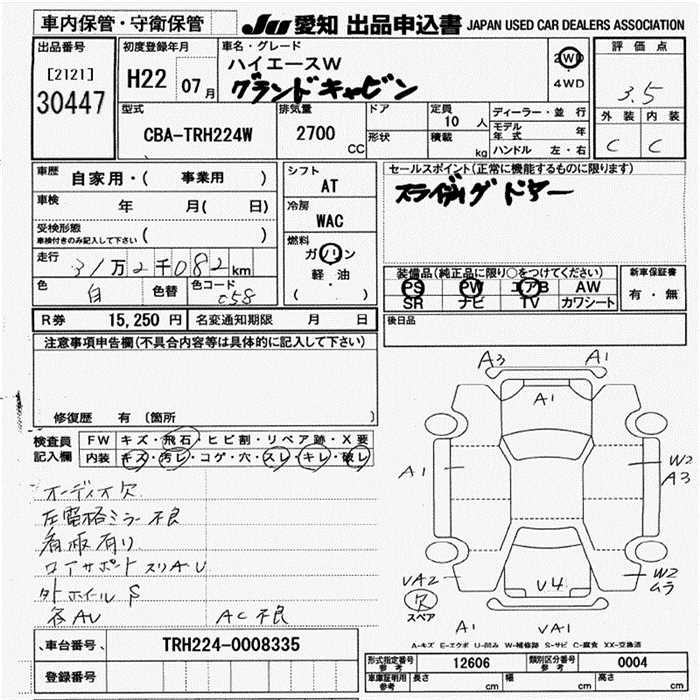 車内保管・守衛保管
JU 愛知 出品申込書 JAPAN USED CAR DEALERS ASSOCIATION
出品番号
[2121]
30447
初度登録年月
H22 07月
車名・グレード
ハイエースW
グランドキャビン
2WD
・
4WD
評価点
3.5
外装 内装
C C
型式
CBA-TRH224W
排気量
2700 CC
ドア
形状
定員
10 人
積載
kg
ディーラー・並行
モデル年式 年
ハンドル 左・右
車歴 自家用・( 事業用 )
車検 年 月( 日)
受検形態
車検付きのみ記入して下さい ( )
走行 31万2千082km
色 白 色替 色コード 058
シフト
AT
冷房
WAC
燃料
ガソリン
軽・油
( )
セールスポイント(正常に機能するものに限ります)
スライディグドアー
装備品(純正品に限り○をつけてください)
PS PW エアB AW
SR ナビ TV カワシート
新車保証書
有・無
後日品
R券 15,250 円 名変通知期限 月 日
注意事項申告欄(不具合内容等は具体的に記入して下さい)
修復歴 有 〔箇所 〕
検査員
記入欄
FW キズ・飛石・ヒビ割・リペア跡・X要
内装 キズ・汚レ・コゲ・穴・スレ・キレ・破レ
オーディオ欠
左電格ミラー不良
看板有り
ロアサポートスリAU
外ホイルS
各AU AC不良
A3 A1
A1
A1
W2
A3
VA2
V4
W2
ムラ
欠
スペア
A1 VA1
A-キズ E-エクボ U-凹み W-補修跡 S-サビ C-腐食 XX-交換済
車台番号 TRH224-0008335
登録番号
形式指定番号
参考
12606
類別区分番号
参考
0004
車庫証明用
参考
長さ cm 幅 cm 高さ cm